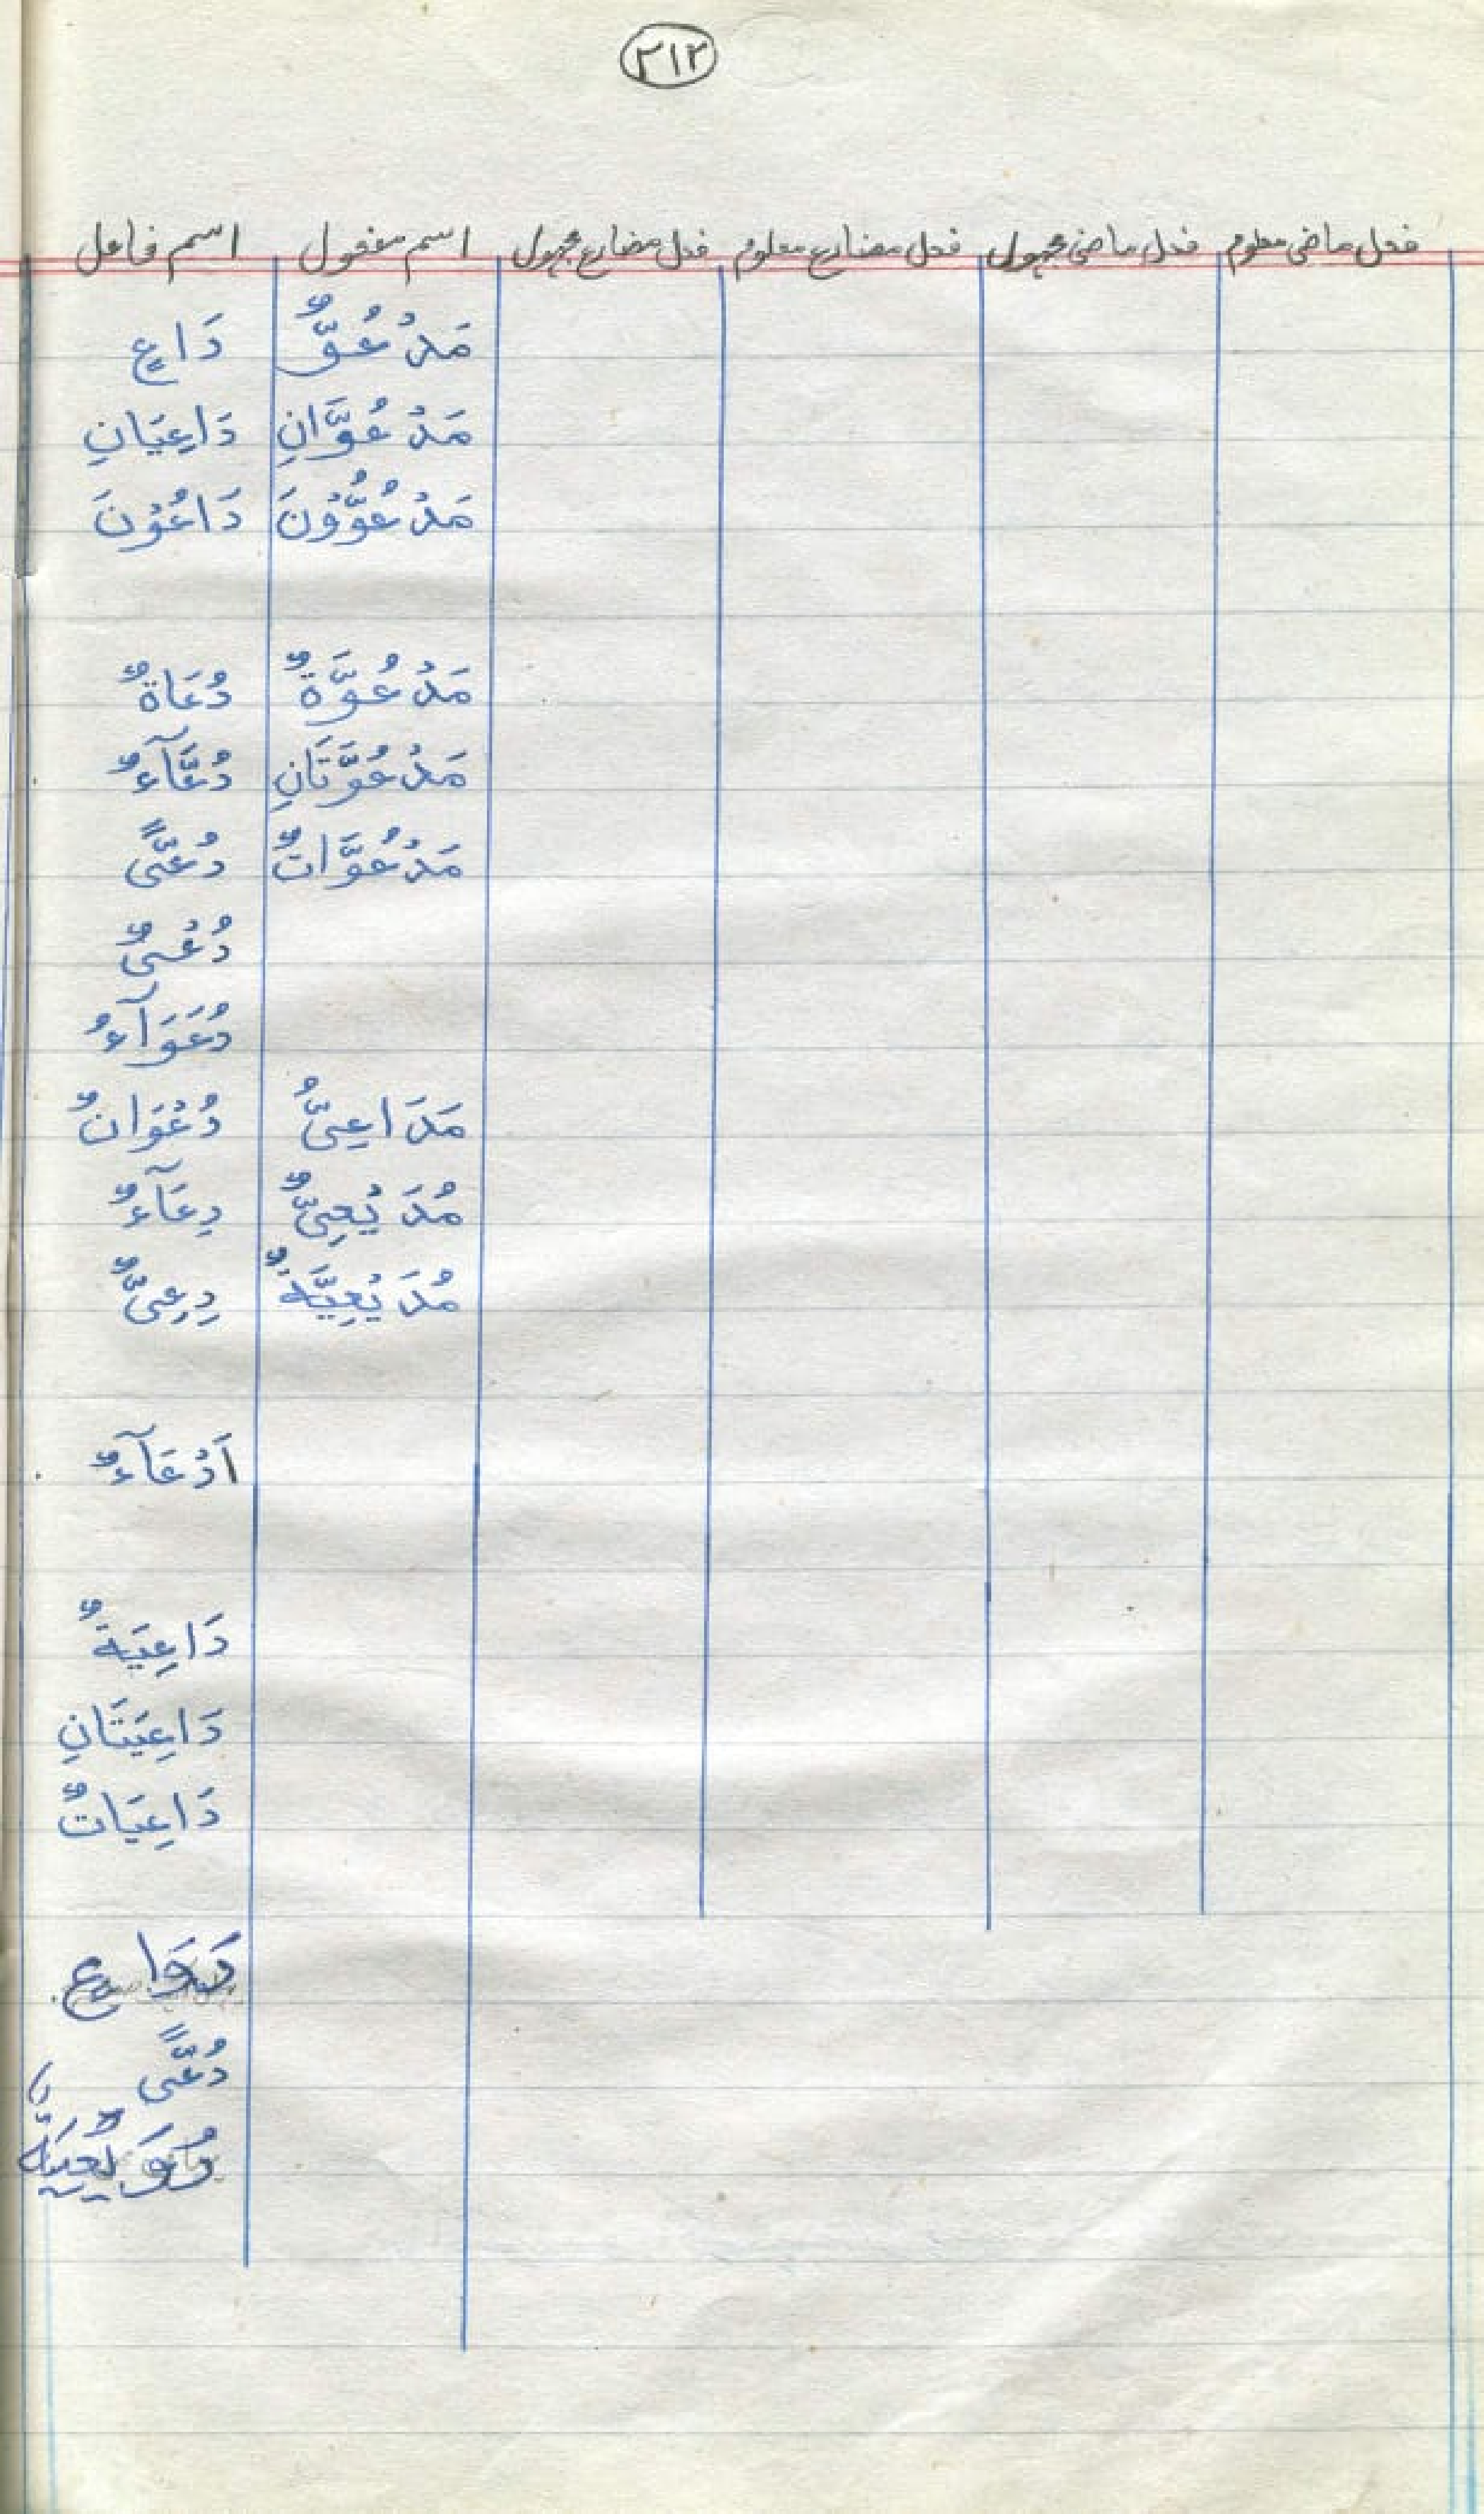 ٢١٢
فعل ماضی معلوم فعل ماضی مجهول فعل مضارع معلوم فعل مضارع مجهول اسم مفعول اسم فاعل
مَدْعُوٌّ دَاعٍ
مَدْعُوَّانِ دَاعِیَانِ
مَدْعُوُّوْنَ دَاعُوْنَ
مَدْعُوَّةٌ دُعَاةٌ
مَدْعُوَّتَانِ دُعَّآءٌ
مَدْعُوَّاتٌ دُعًّی
دُعْیٌ
دُعَوَآءُ
مَدَاعِیُّ دُعْوَانٌ
مُدَیْعِیٌّ دِعَآءٌ
مُدَیْعِیَّةٌ دِعِیٌّ
اَدْعَآءٌ
دَاعِیَةٌ
دَاعِیَتَانِ
دَاعِیَاتٌ
دَوَاعٍ
دُعًّی
دُوَیْعِیَةٌ